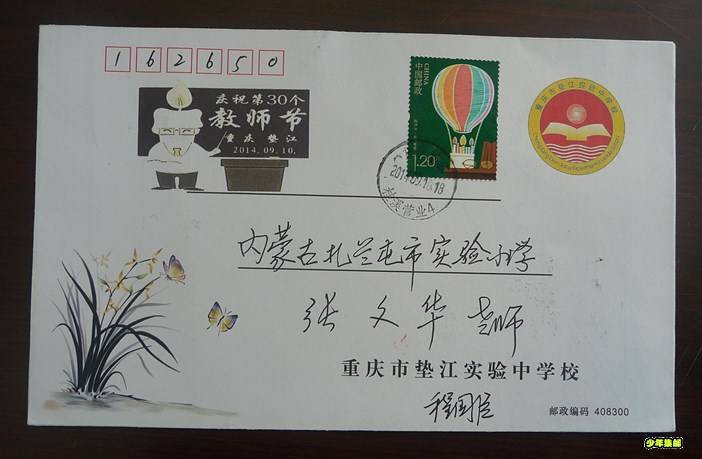 162650
庆祝第30个
教师节
重庆 垫江
2014.09.10.
中国邮政
CHINA
1.20元
重庆市垫江实验中学校
2014.09.10.18
桂溪营业4
内蒙古扎兰屯市实验小学
张文华 老师
重庆市垫江实验中学校
程国臣
邮政编码 408300
少年集邮